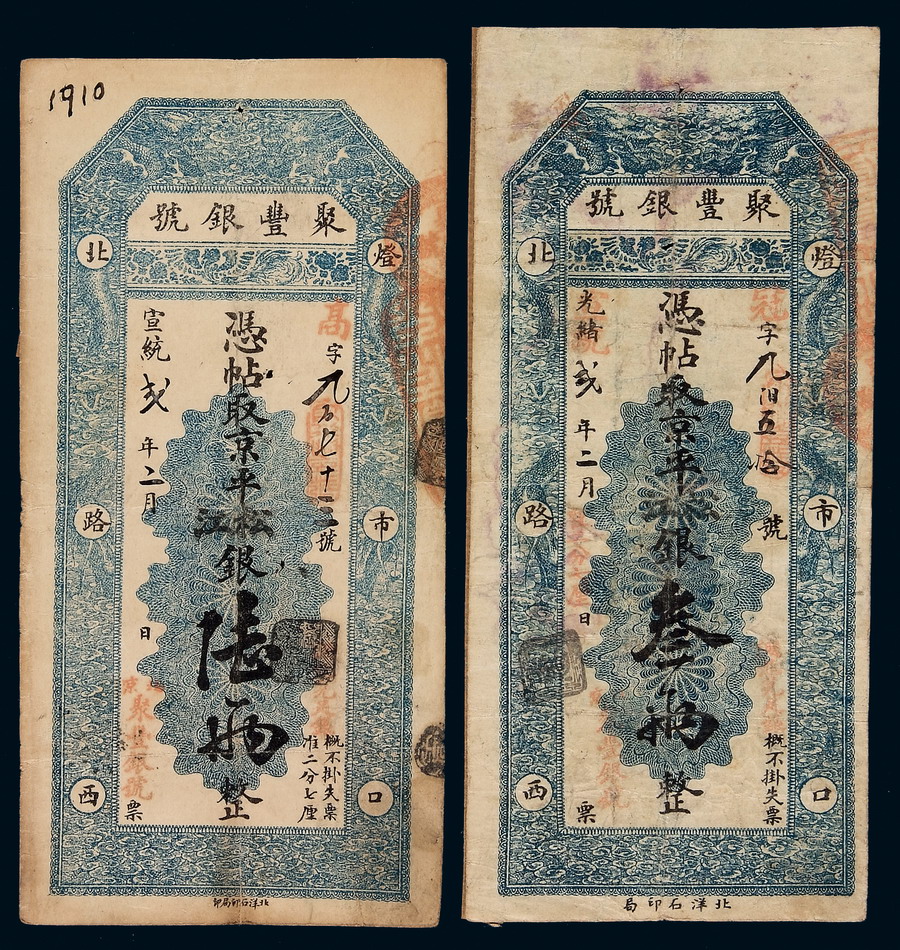 1910
聚豐銀號
燈市口
高字九百七十三號
概不掛失票
准二分七厘
憑帖取京平松江銀陸兩整
宣統貳年二月日票
北路西
北洋石印局印
聚豐銀號
燈市口
冠字九佰五拾號
概不掛失票
憑帖取京平松江銀叁兩整
光緒貳年二月日票
北路西
北洋石印局